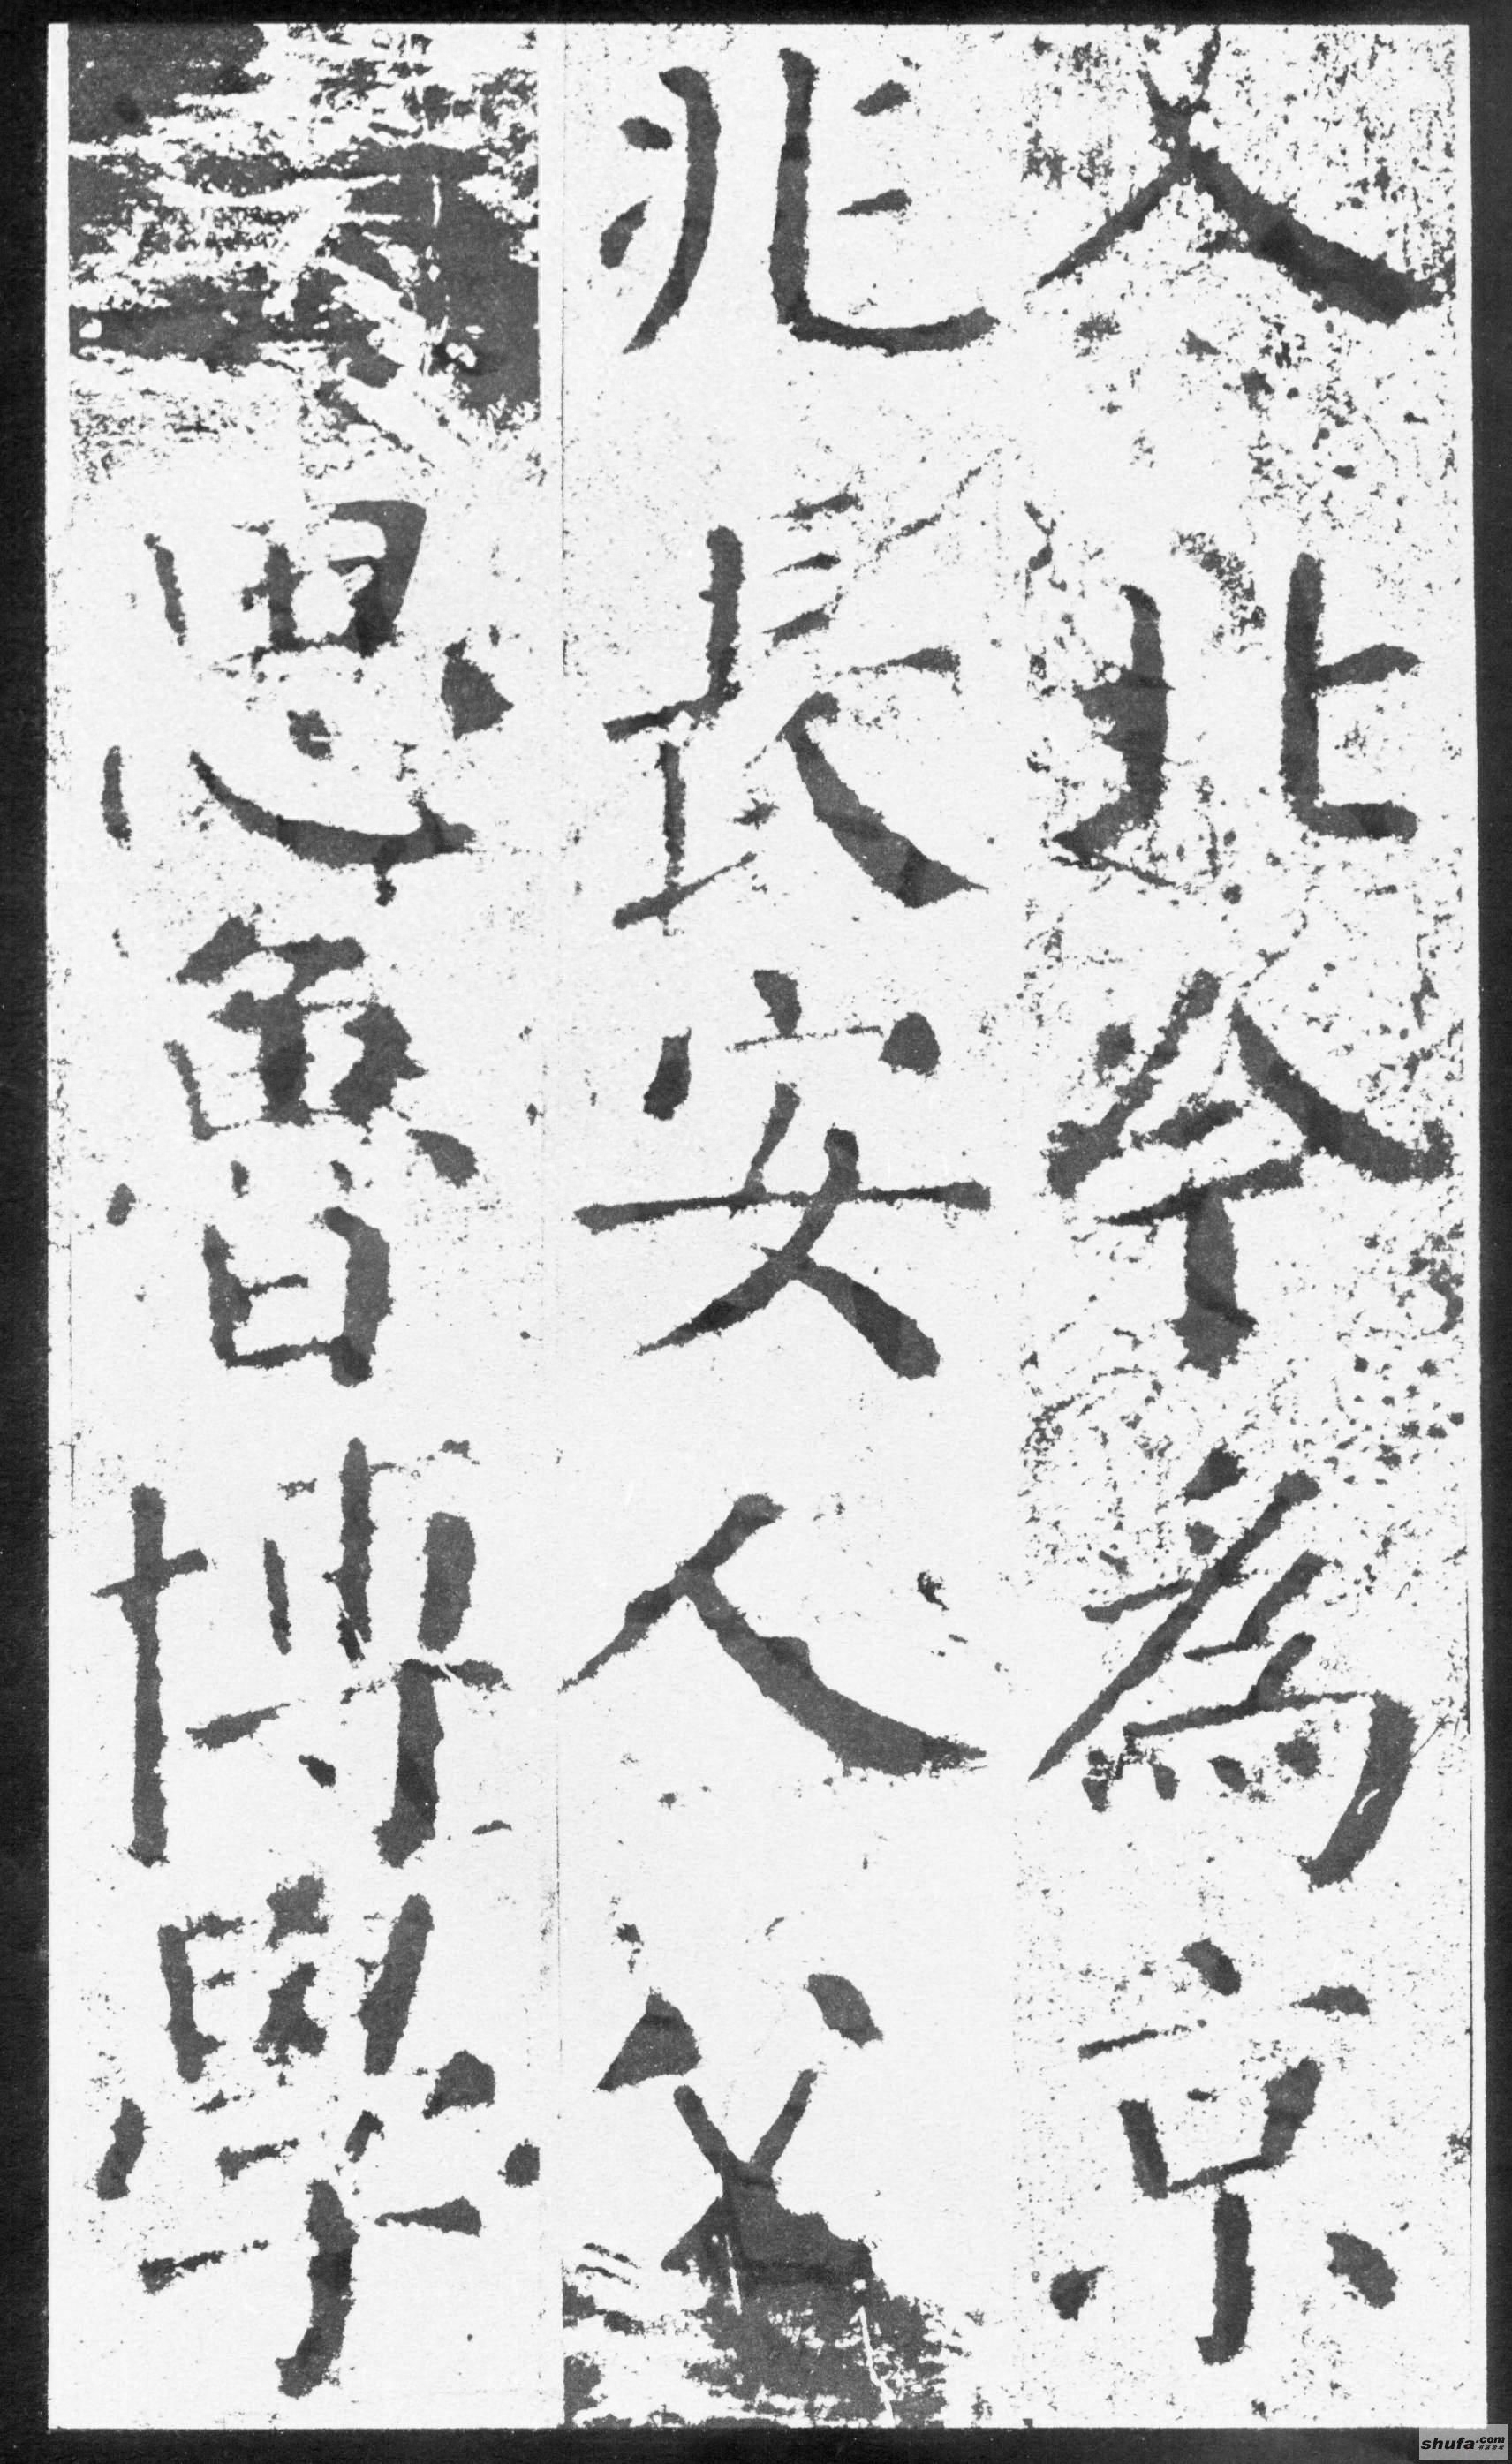 人北今為京
兆長安人父
思魯博學
shufa.com